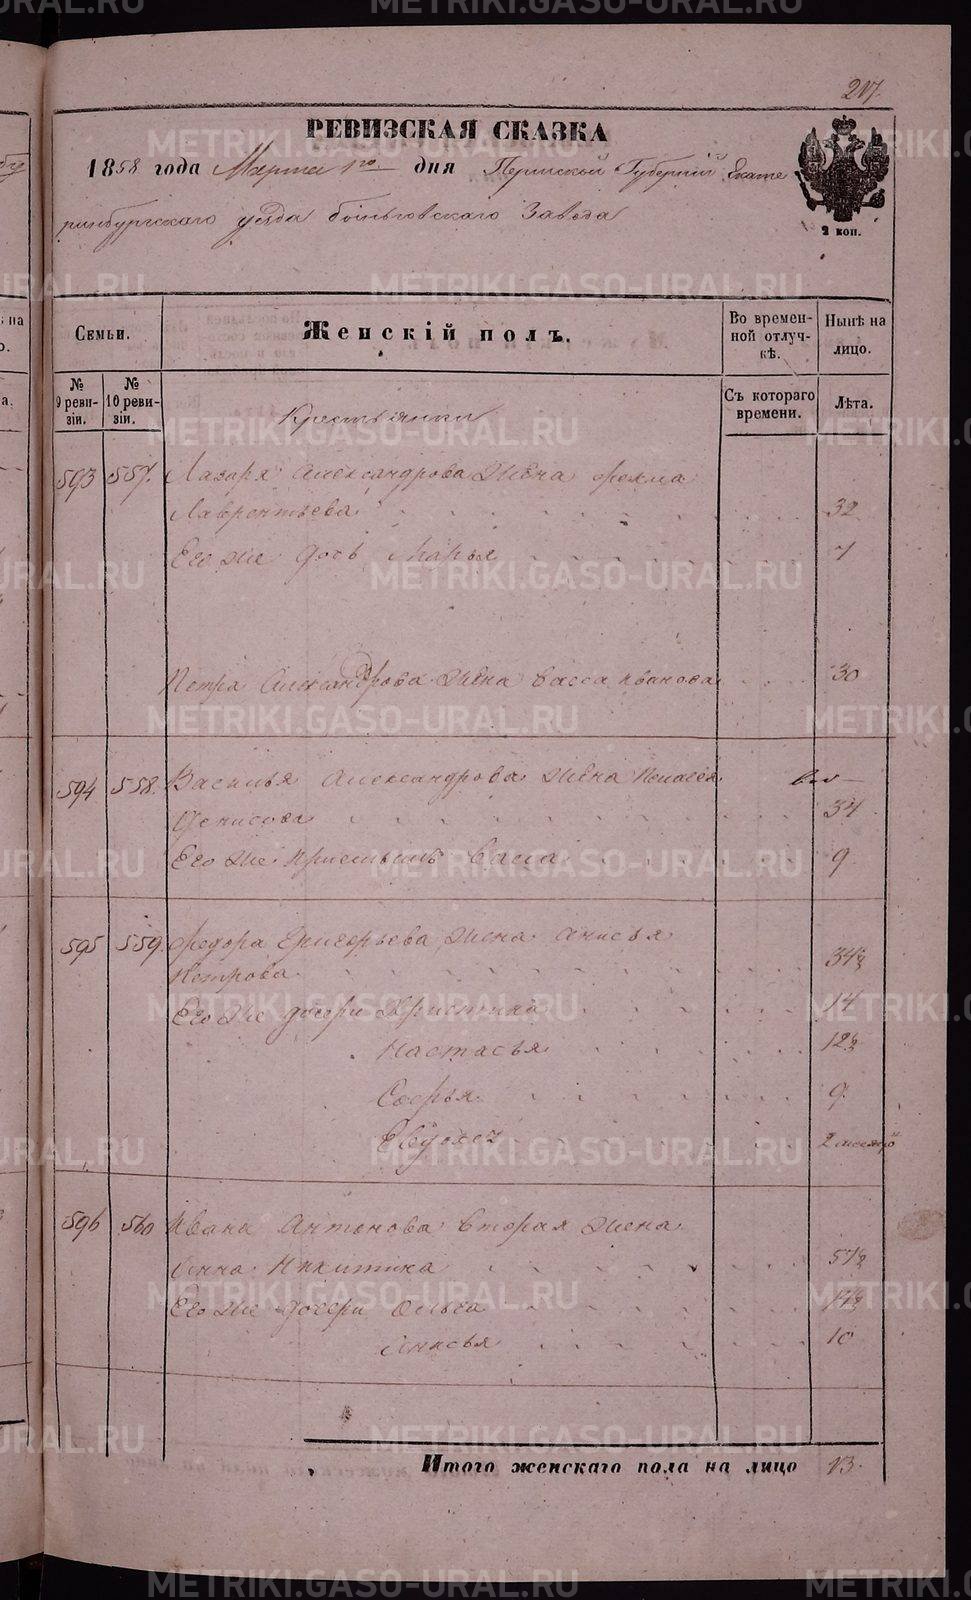 217.
РЕВИЗСКАЯ СКАЗКА
1858 года Марта 1го дня Пермской Губернии Екате
ринбургскаго уезда Боинговскаго Завода
2 коп.
Семьи.
Женскій полъ.
Во времен-
ной отлуч-
кѣ.
Нынѣ на
лицо.
№
9 реви-
зіи.
№
10 реви-
зіи.
Съ котораго
времени.
Лѣта.
Крестьянки
593 557. Лазаря Александрова жена
Лаврентьева 32
Его же дочь Марья 7
Петра Александрова жена Васса Иванова 30
594 558. Василья Александрова жена Пелагея
Денисова 34
Его же приемышъ Васса 9
595 559. Федора Григорьева жена Анисья
Петрова 34½
Его же дочери Христина 14
Настасья 12½
Софья 9
Евдокея 2 месяц
596 560 Ивана Антонова вторая жена
Анна Никитина 57½
Его же дочери Ольга 14½
Анисья 10
Итого женскаго пола на лицо 13.
METRIKI.GASO-URAL.RU